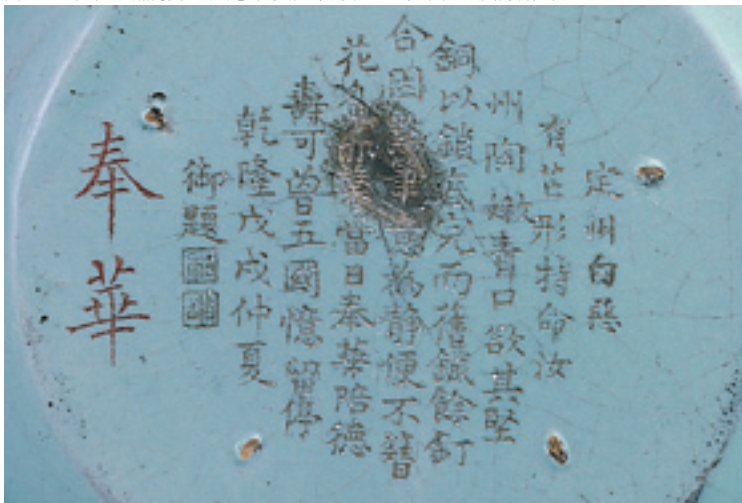 定州白惡
有芒形特命汝
州陶嫩青口欲其堅
銅以鎖底完而舊鐵餘釘
合因筆為静便不簪
花亦當日奉華陪德
壽可曾五國憶留停
乾隆戊戌仲夏
御題
奉華